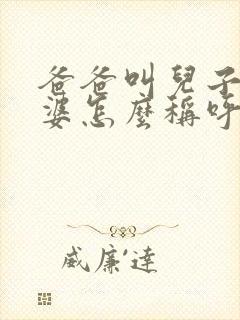 爸爸叫兒子
婆怎麼稱呼
威廉·達